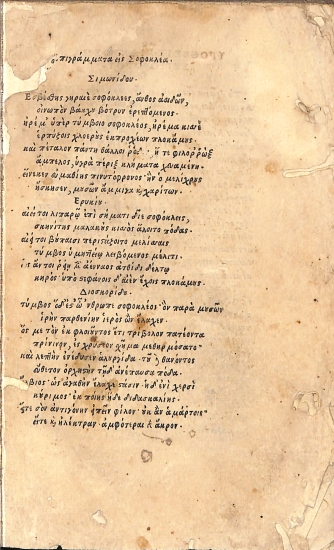 Ἐπιγράμματα εἰς Σοφοκλέα.
Σιμωνίδου.
Ἐσβέσθης γηραιὲ σοφόκλεες, ἄνθος ἀοιδῶν,
οἰνωπὸν βάκχου βότρυν ἐρεπτόμενος.
ἠρέμ' ὑπὲρ τύμβοιο σοφοκλέος, ἠρέμα κισσὲ
ἑρπύζοις χλοεροὺς ἐκπροχέων πλοκάμους
καὶ πέταλον πάντη θάλλοι ῥόδου, ἥ τε φιλορρὼξ
ἄμπελος, ὑγρὰ πέριξ κλήματα χευαμένη
εἵνεκεν εὐμαθίης πινυτόφρονος, ἣν ὁ μελιχρὸς
ἤσκησεν, μουσῶν ἄμμιγα καὶ χαρίτων.
Ἐρυκίου
αἰεί τοι λιπαρῷ ἐπὶ σήματι δῖε σοφόκλεις,
σκηνίτης μαλακοὺς κισσὸς ἅλοιτο πόδας.
αἰεί τοι βούπαισι περιστάζοιτο μελίσσαις
τύμβος ὑμηττείῳ λειβόμενος μέλιτι.
ὡς ἄν τοι ῥείη μὲν ἀένναος ἀτθίδι δέλτῳ
κηρὸς ὑπὸ στεφάνοις δ' αἰὲν ἔχοις πλοκάμους.
Διοσκορίδου
τύμβος ὅδ' ἔστ' ὤνθρωπε σοφοκλέος ὃν παρὰ μουσῶν
ἱρὴν παρθενίην ἱερὸς ὢν ἔλαχεν.
ὅς με τὸν ἐκ φλιοῦντος ἔτι τρίβολον πατέοντα
πρίνινον, ἐς χρύσεον σχῆμα μεθηρμόσατο
καὶ λεπτὴν ἐνέδυσεν ἁλουργίδα. τοῦ δὲ θανόντος
εὔθετον ὀρχηστὴν τῇδ' ἀνέπαυσα πόδα.
ὄλβιος ὡς ἀγαθὴν ἔλαχες στάσιν. ἡ δ' ἐνὶ χερσὶ
κούριμος ἐκ ποίης ἥδε διδασκαλίης.
εἴτε σοι ἀντιγόνην εἰπεῖν φίλον οὐκ ἂν ἁμάρτοις
εἴτε καὶ ἠλέκτραν. ἀμφότεραι γὰρ ἄκρον.